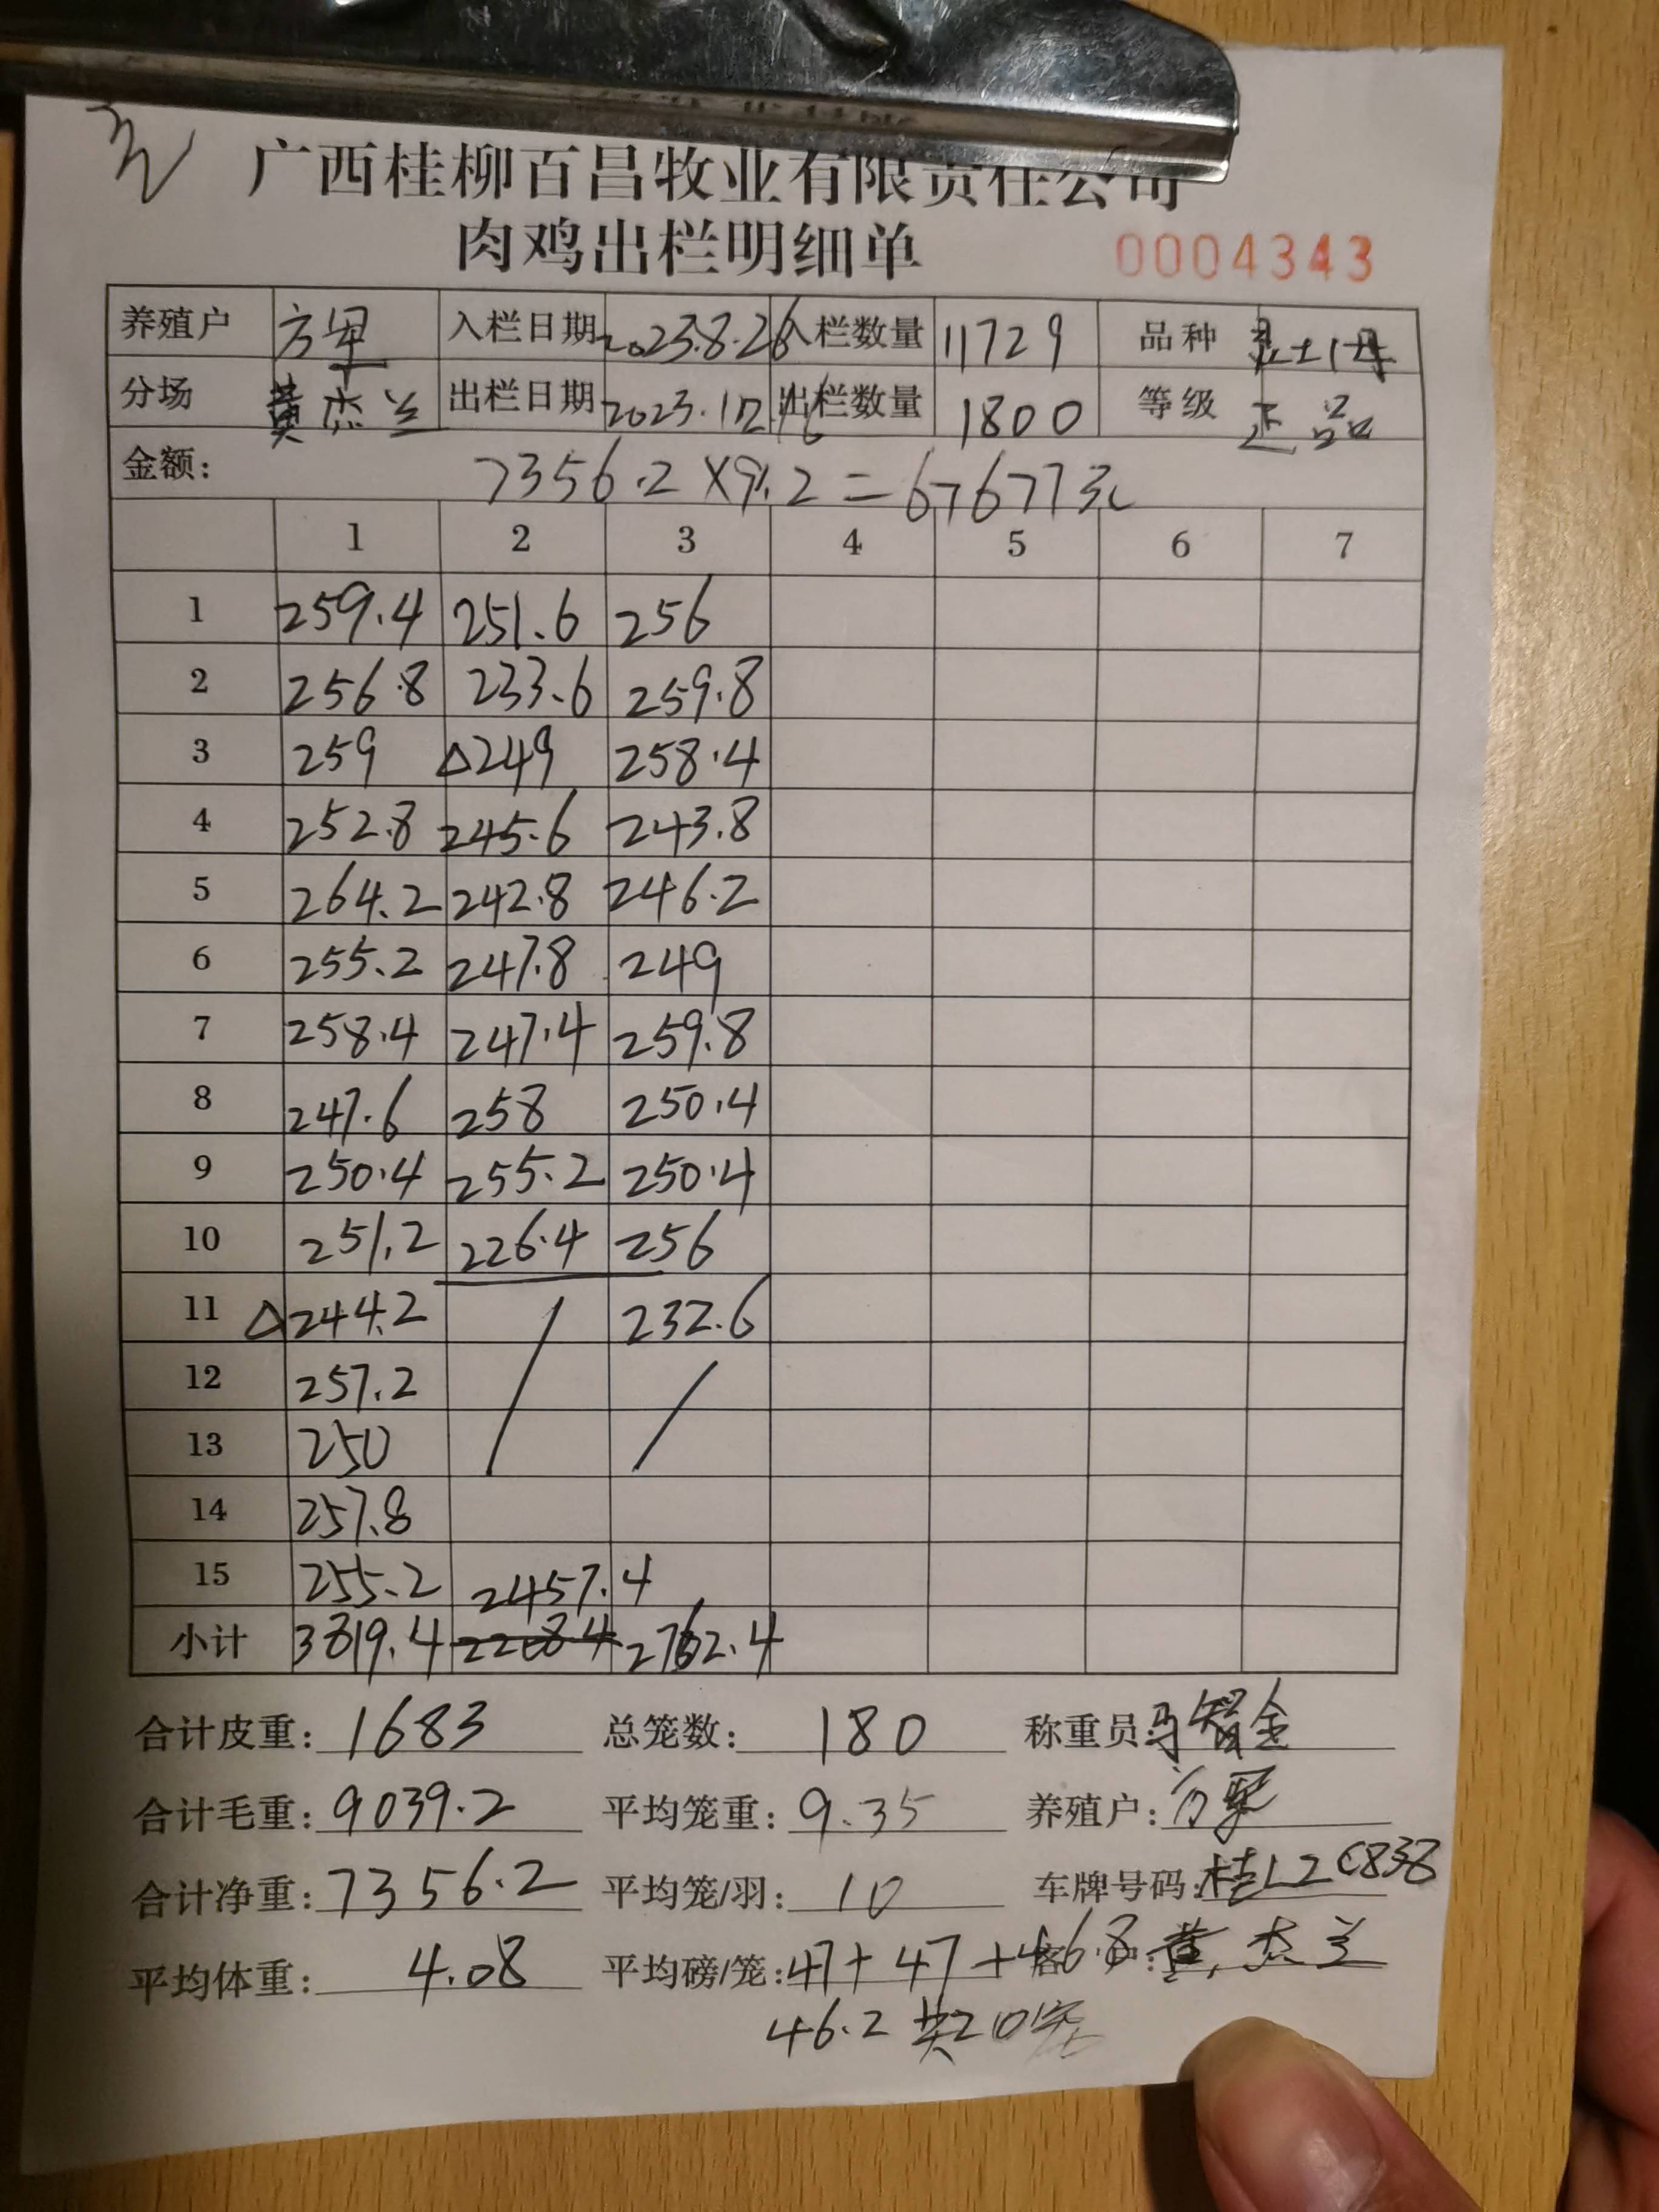 广西桂柳百昌牧业有限责任公司
肉鸡出栏明细单 0004343
养殖户 入栏日期 2023.8.26 入栏数量 11729 品种
分场 黄杰兰 出栏日期 2023.12.16 出栏数量 1800 等级 正品
金额: 7356.2×9.2=67677元
1 2 3 4 5 6 7
1 259.4 251.6 256
2 256.8 233.6 259.8
3 259 △249 258.4
4 252.8 245.6 243.8
5 264.2 242.8 246.2
6 255.2 247.8 249
7 258.4 247.4 259.8
8 247.6 258 250.4
9 250.4 255.2 250.4
10 251.2 226.4 256
11 △244.2 / 232.6
12 257.2 /
13 250
14 257.8
15 255.2 2457.4
小计 3819.4 2762.4
合计皮重: 1683 总笼数: 180 称重员:
合计毛重: 9039.2 平均笼重: 9.35 养殖户:
合计净重: 7356.2 平均笼/羽: 10 车牌号码: 桂L2C838
平均体重: 4.08 平均磅/笼: 47+47+46.8 客户: 黄杰兰
46.2 共20